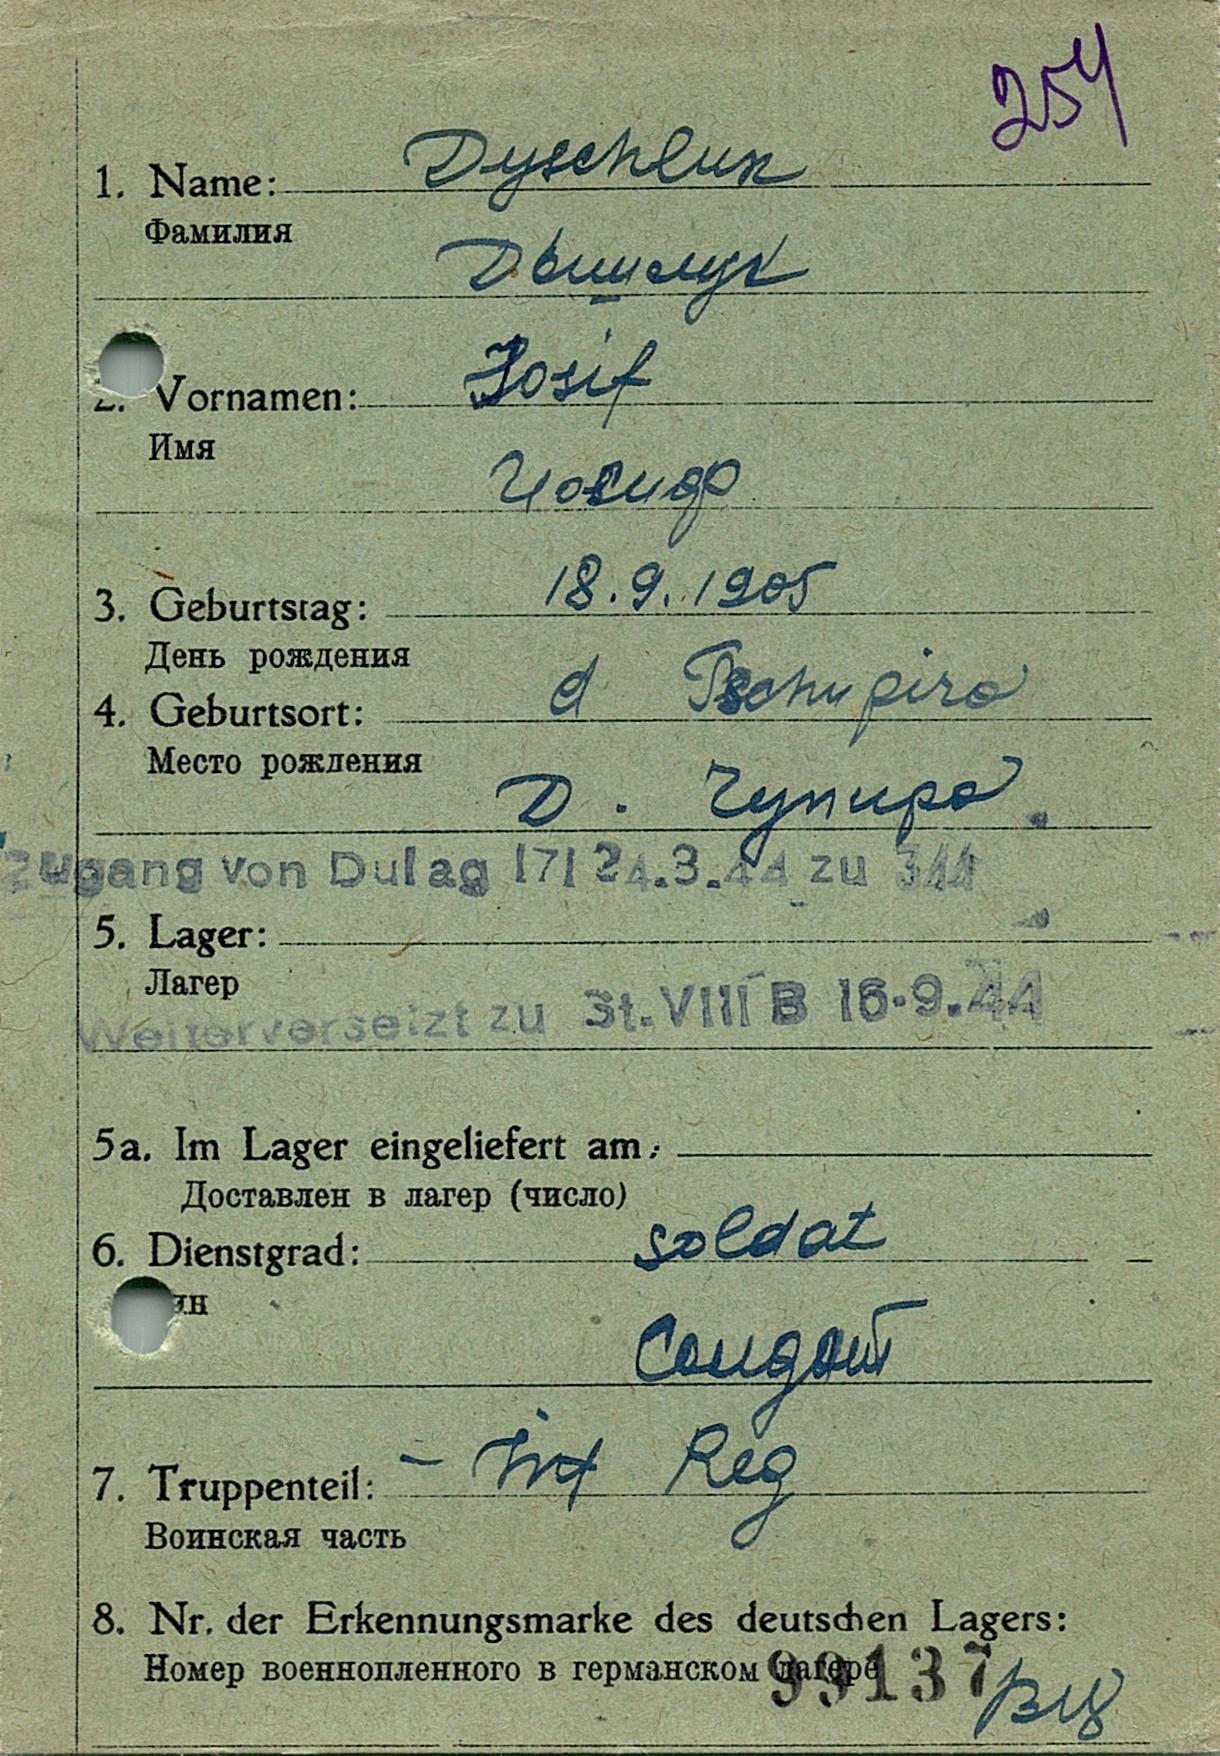 254
1. Name: Dyschluk
Фамилия
Дышлук
2. Vornamen: Josif
Имя
Иосиф
3. Geburtstag: 18.9.1905
День рождения
4. Geburtsort: d Tschupira
Место рождения
Д. Чупира
Zugang von Dulag 171 24.3.44 zu 344
5. Lager:
Лагер
Weiterversetzt zu St. VIII B 16.9.44
5a. Im Lager eingeliefert am:
Доставлен в лагер (число)
6. Dienstgrad: soldat
ин
Солдат
7. Truppenteil: - Inf Reg
Воинская часть
8. Nr. der Erkennungsmarke des deutschen Lagers:
Номер военнопленного в германском лагере 99137